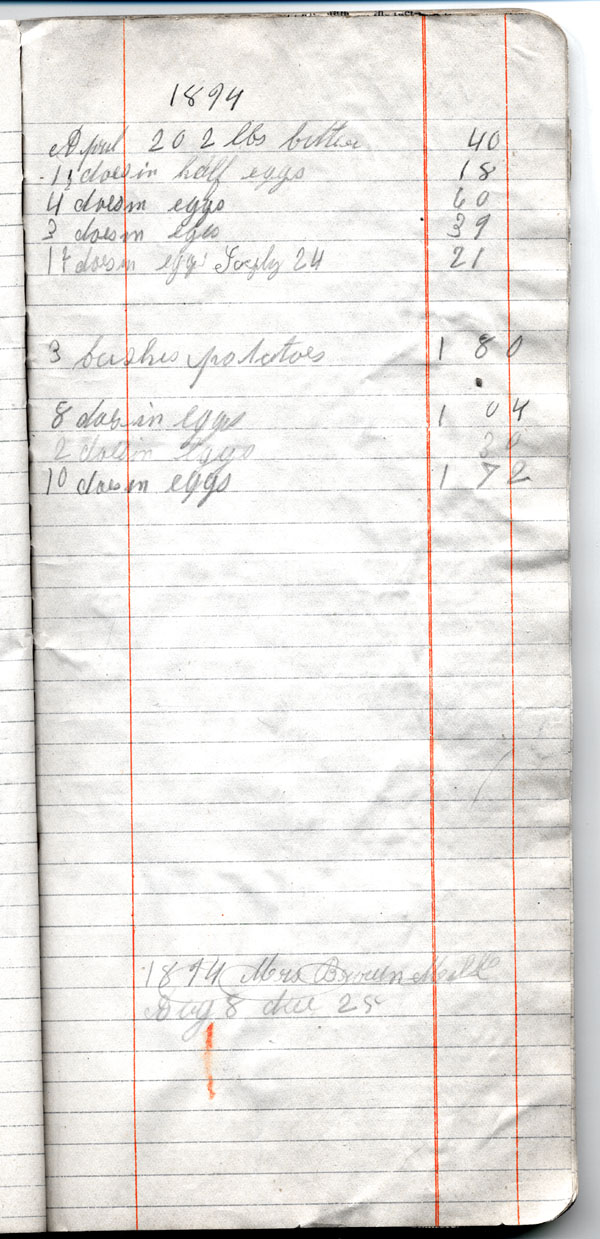 1894
April 20 2 lbs butter 40
1½ doesin half eggs 18
4 doesin eggs 60
3 doesin eges 39
17 doesin eggs 24 21
3 bushes potatoes 1 80
8 doesin eggs 1 04
2 doesin eggs 30
10 doesin eggs 1 72
1894 Mrs Brown
Aug 8 due 25